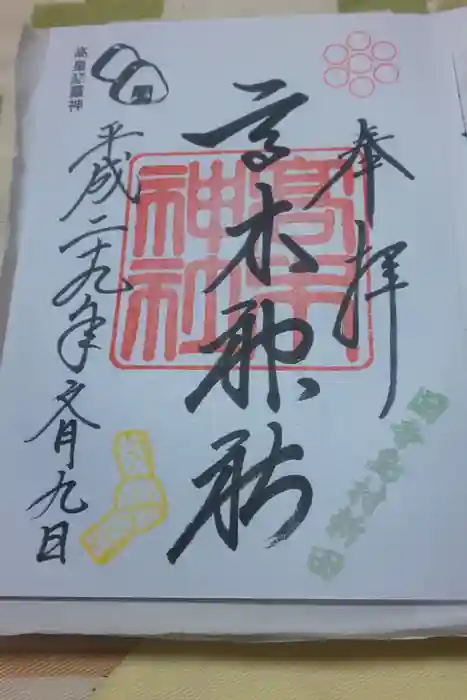 奉拝
高木神社
高木神社
高皇産靈神
平成二十九年六月九日